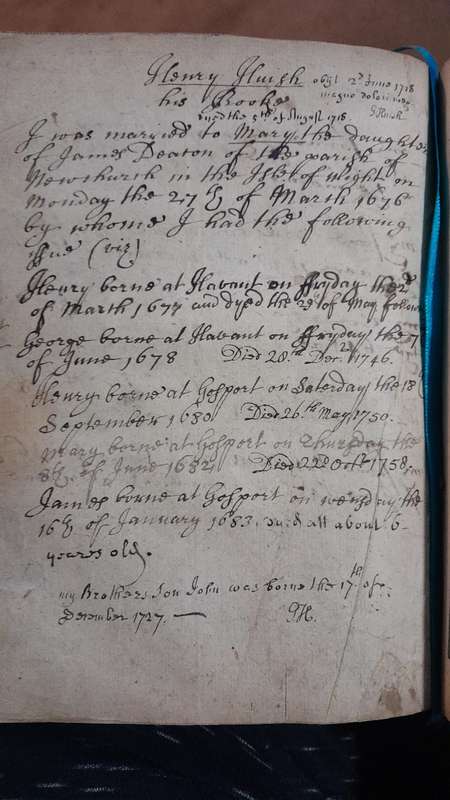 Henry Huish obijt 2d June 1718
his Booke magno dolori meo
dyed the 5th of August 1718 G Huish
I was married to Mary the daughter
of James Deacon of the parish of
Newchurch in the Isle of Wight on
Monday the 27th of March 1676
by whome I had the following
issue (viz)
Henry borne at Havant on ffryday the 2d
of March 1677 and dyed the of May follow
George borne at Havant on ffryday the 7
of June 1678 Died 28th Decr 1746.
Henry borne at Gosport on Saterday the 18
September 1680 Died 26th May 1750.
Mary borne at Gosport on Thursday the
8th of June 1682 Died 22d Octr 1758
James borne at Gosport on wensday the
16th of January 1683. dyed all about 6
yeares old.
my Brothers son John was borne the 17th of
December 1727. — GH.